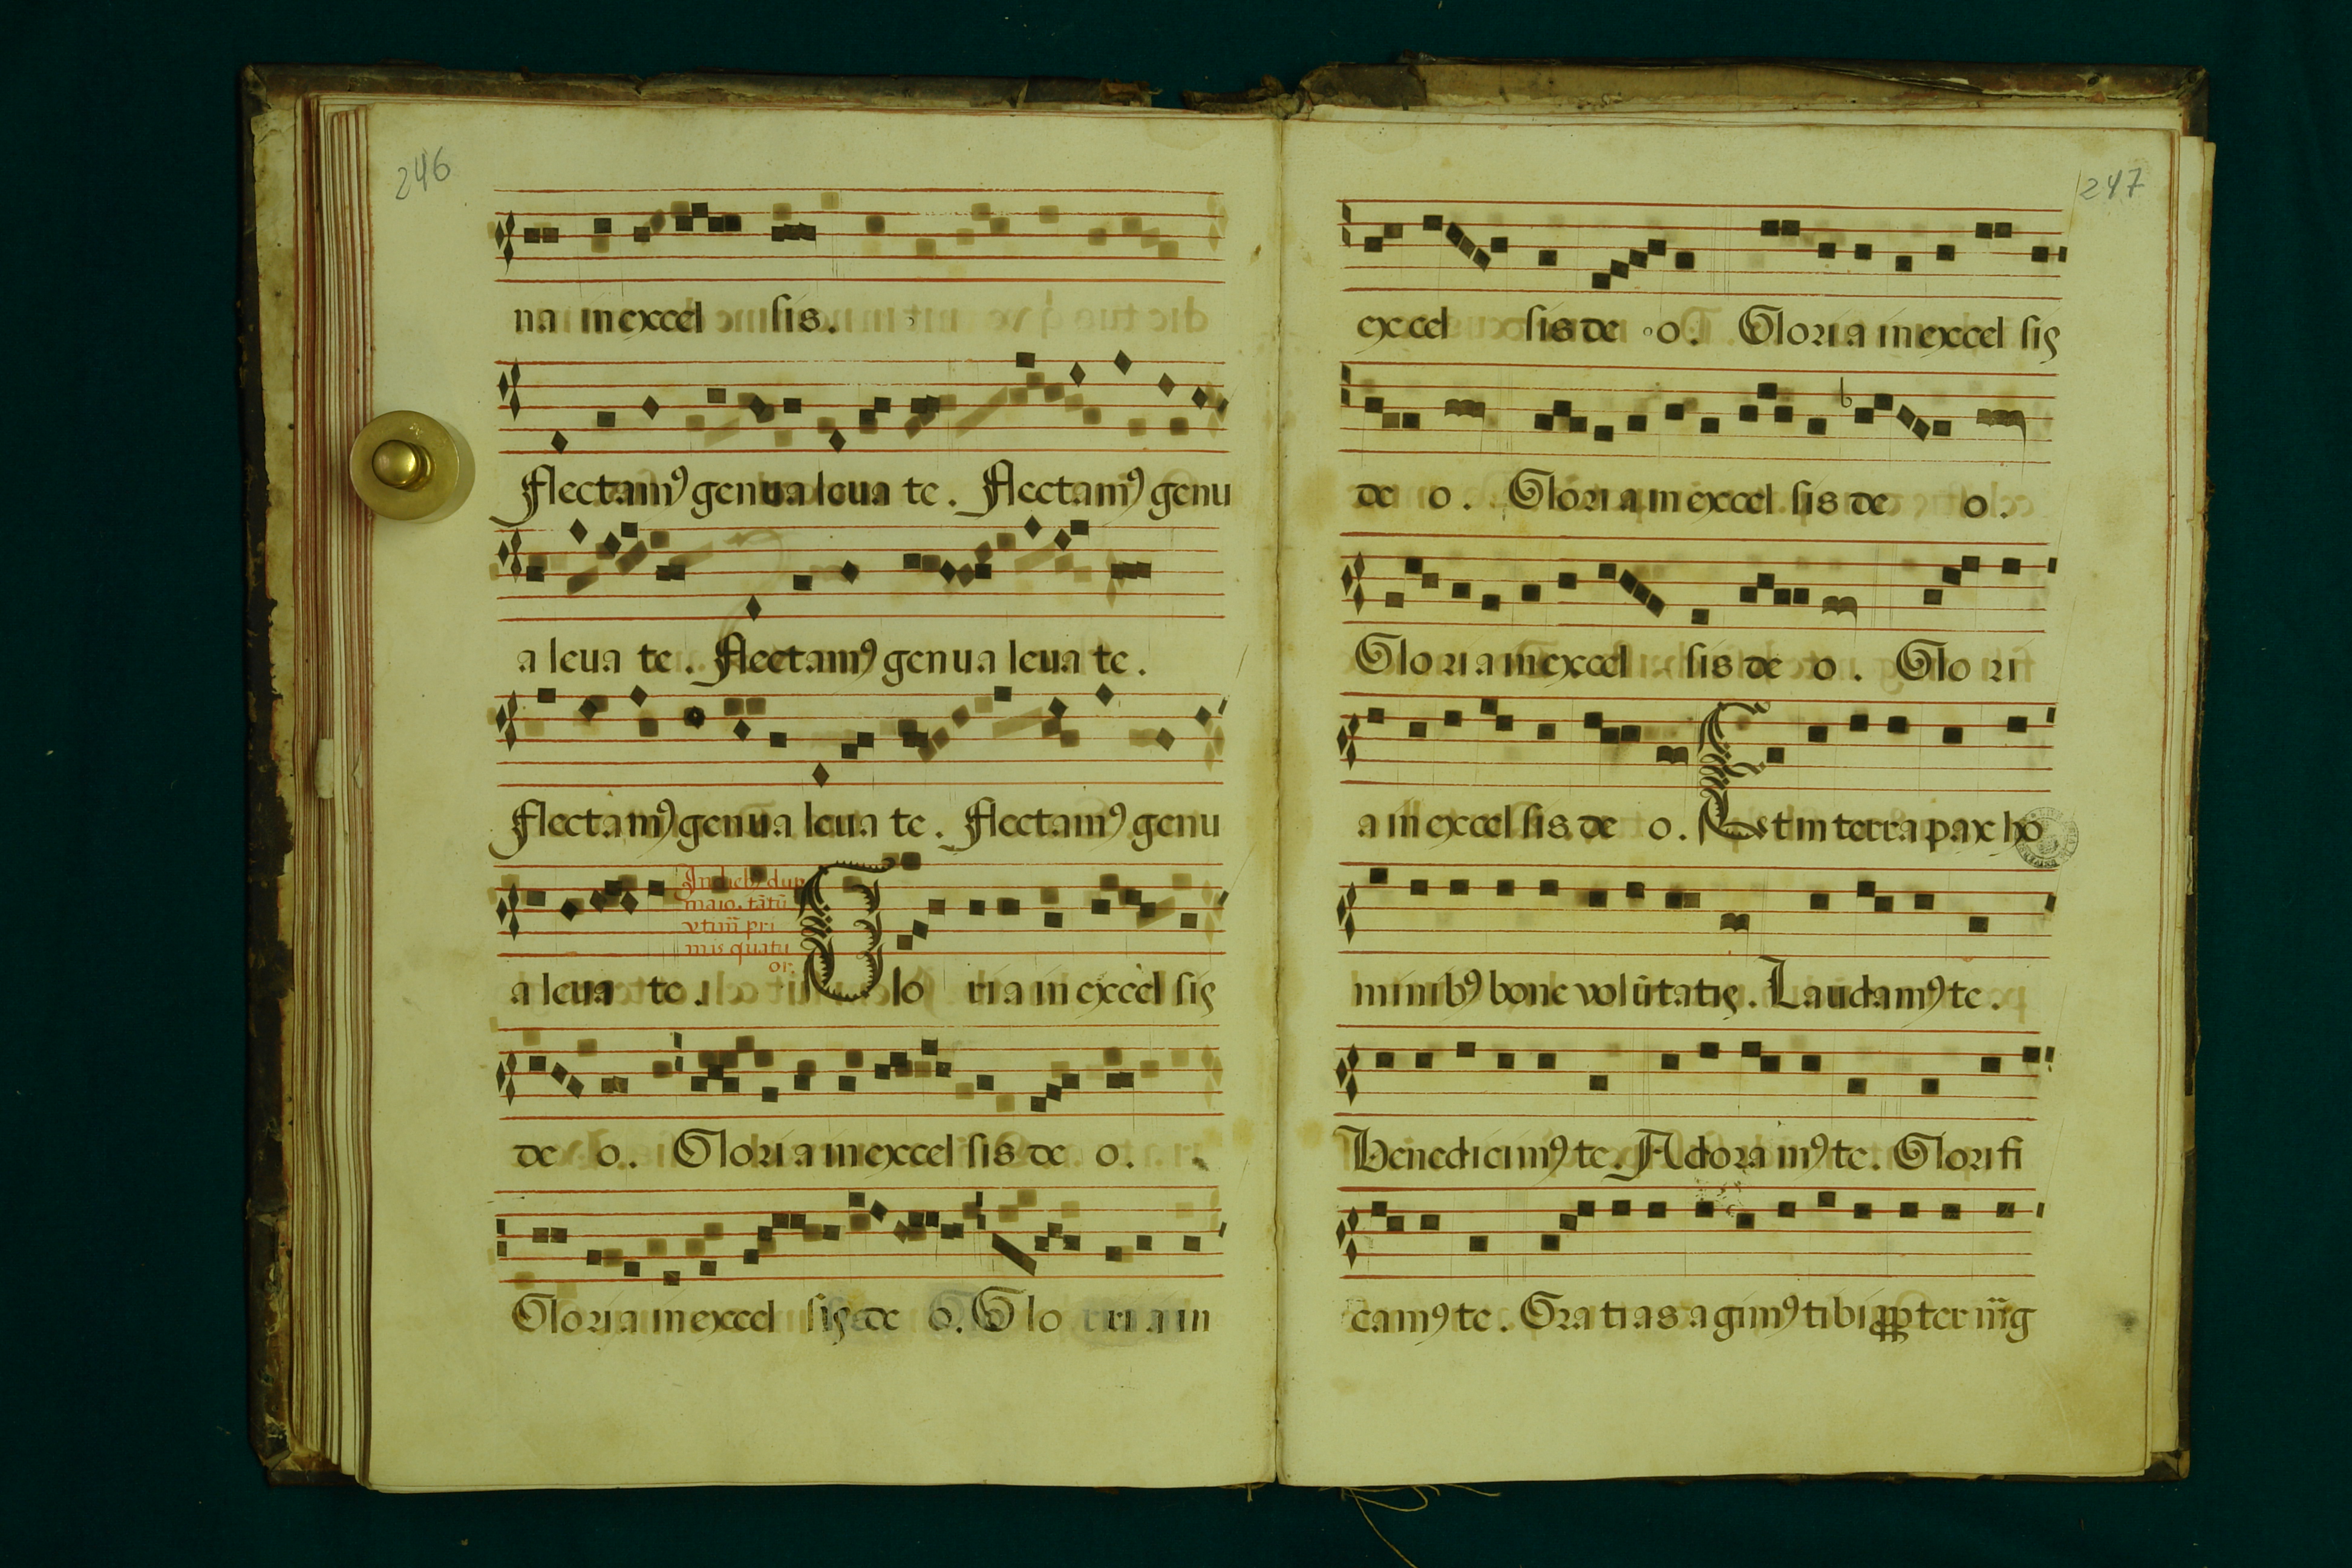 246
na in excel sis.
flectamꝰ genua leua te. flectamꝰ genu
a leua te. flectamꝰ genua leua te.
flectamꝰ genua leua te. flectamꝰ genu
a leua te. Glo ria in excel sis
de o. Gloria in excel sis de o.
Gloria in excel sis de o. Glo ria in
247
excel sis de o. Gloria in excel sis
de o. Gloria in excel sis de o.
Gloria in excel sis de o. Glo ri
a in excel sis de o. Et in terra pax ho
minibꝰ bone volūtatis. Laudamꝰ te.
Benedicimꝰ te. Adoramꝰ te. Glorifi
camꝰ te. Gratias agimꝰ tibi ꝓpter